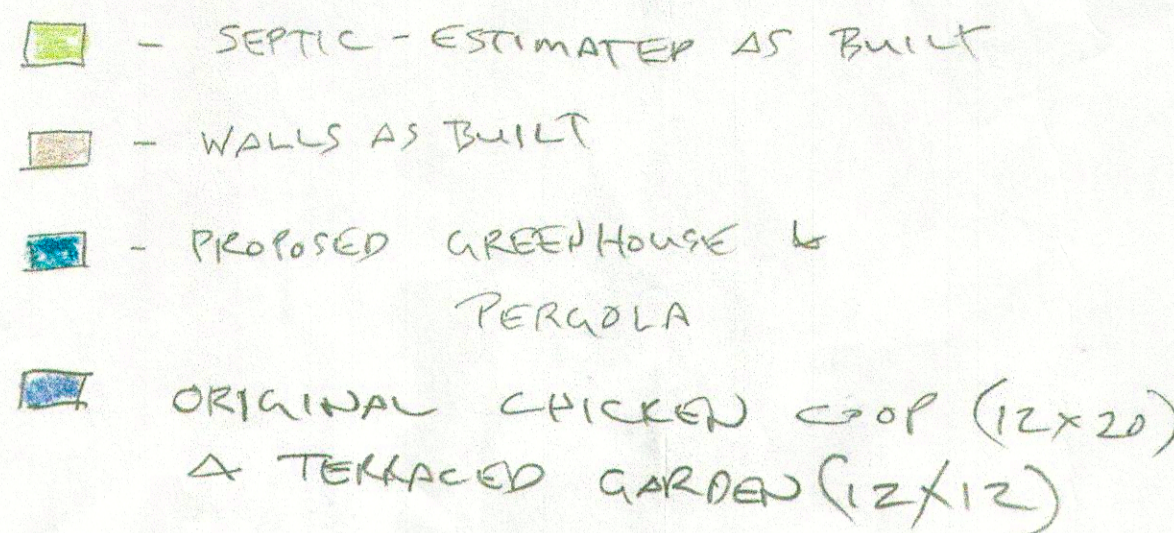 - SEPTIC - ESTIMATED AS BUILT
- WALLS AS BUILT
- PROPOSED GREENHOUSE &
PERGOLA
ORIGINAL CHICKEN COOP (12x20)
& TERRACED GARDEN (12x12)